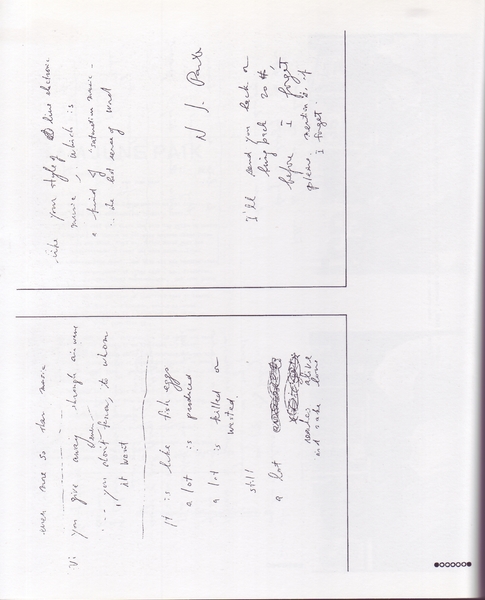 even more so than
you give away through air wave
even
you don't know, to whom
it went
It is like fish eggs
a lot is produced
a lot is killed or
wasted.
still
a lot
reaches alive
and make
your style of live electronic
music, which is
a kind of "saturation music -
the best sense of word
N J. Paik
I'll send you back or
bring back 20 $,
before I forget
please mention it if
I forget.